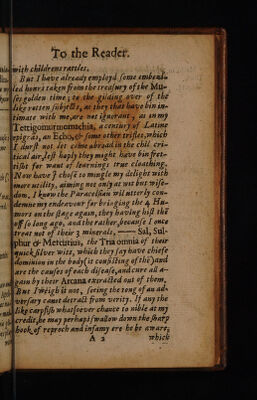 To the Reader.
with childrens rattles.
But I have already employd some embezu-
led hours taken from the treasury of the Mu-
ses golden time, to the gilding over of the
like rotten subjects, as they that have bin in-
timate with me, are not ignorant, as in my
Tettigomurmomachia, a century of Latine
epigrās, an Echo, & some other trifles, which
I durst not let come abroad in the chil cri-
tical air, lest haply they might have bin fret-
tisht for want of learnings true cloathing.
Now have I chose to mingle my delight with
more utility, aiming not only at wit but wis-
dom. I know the Paracelsian wil utterly con-
demne my endeavour for bringing the 4 Hu-
mors on the stage again, they having hist thē
off so long ago, and the rather, because I once
treat not of their 3 minerals, Sal, Sul-
phur & Mercurius, the Tria omnia of their
quick silver wits, which they say have chiefe
dominion in the body (it consisting of thē) and
are the causes of each disease, and cure all a-
gain by their Arcana extracted out of them.
But I weigh it not, seeing the tongue of an ad-
versary canot detract from verity. If any the
like carpfish whatsoever chance to nible at my
credit, he may perhaps swallow down the sharp
hook of reproch and infamy ere he be aware,
A 2 which